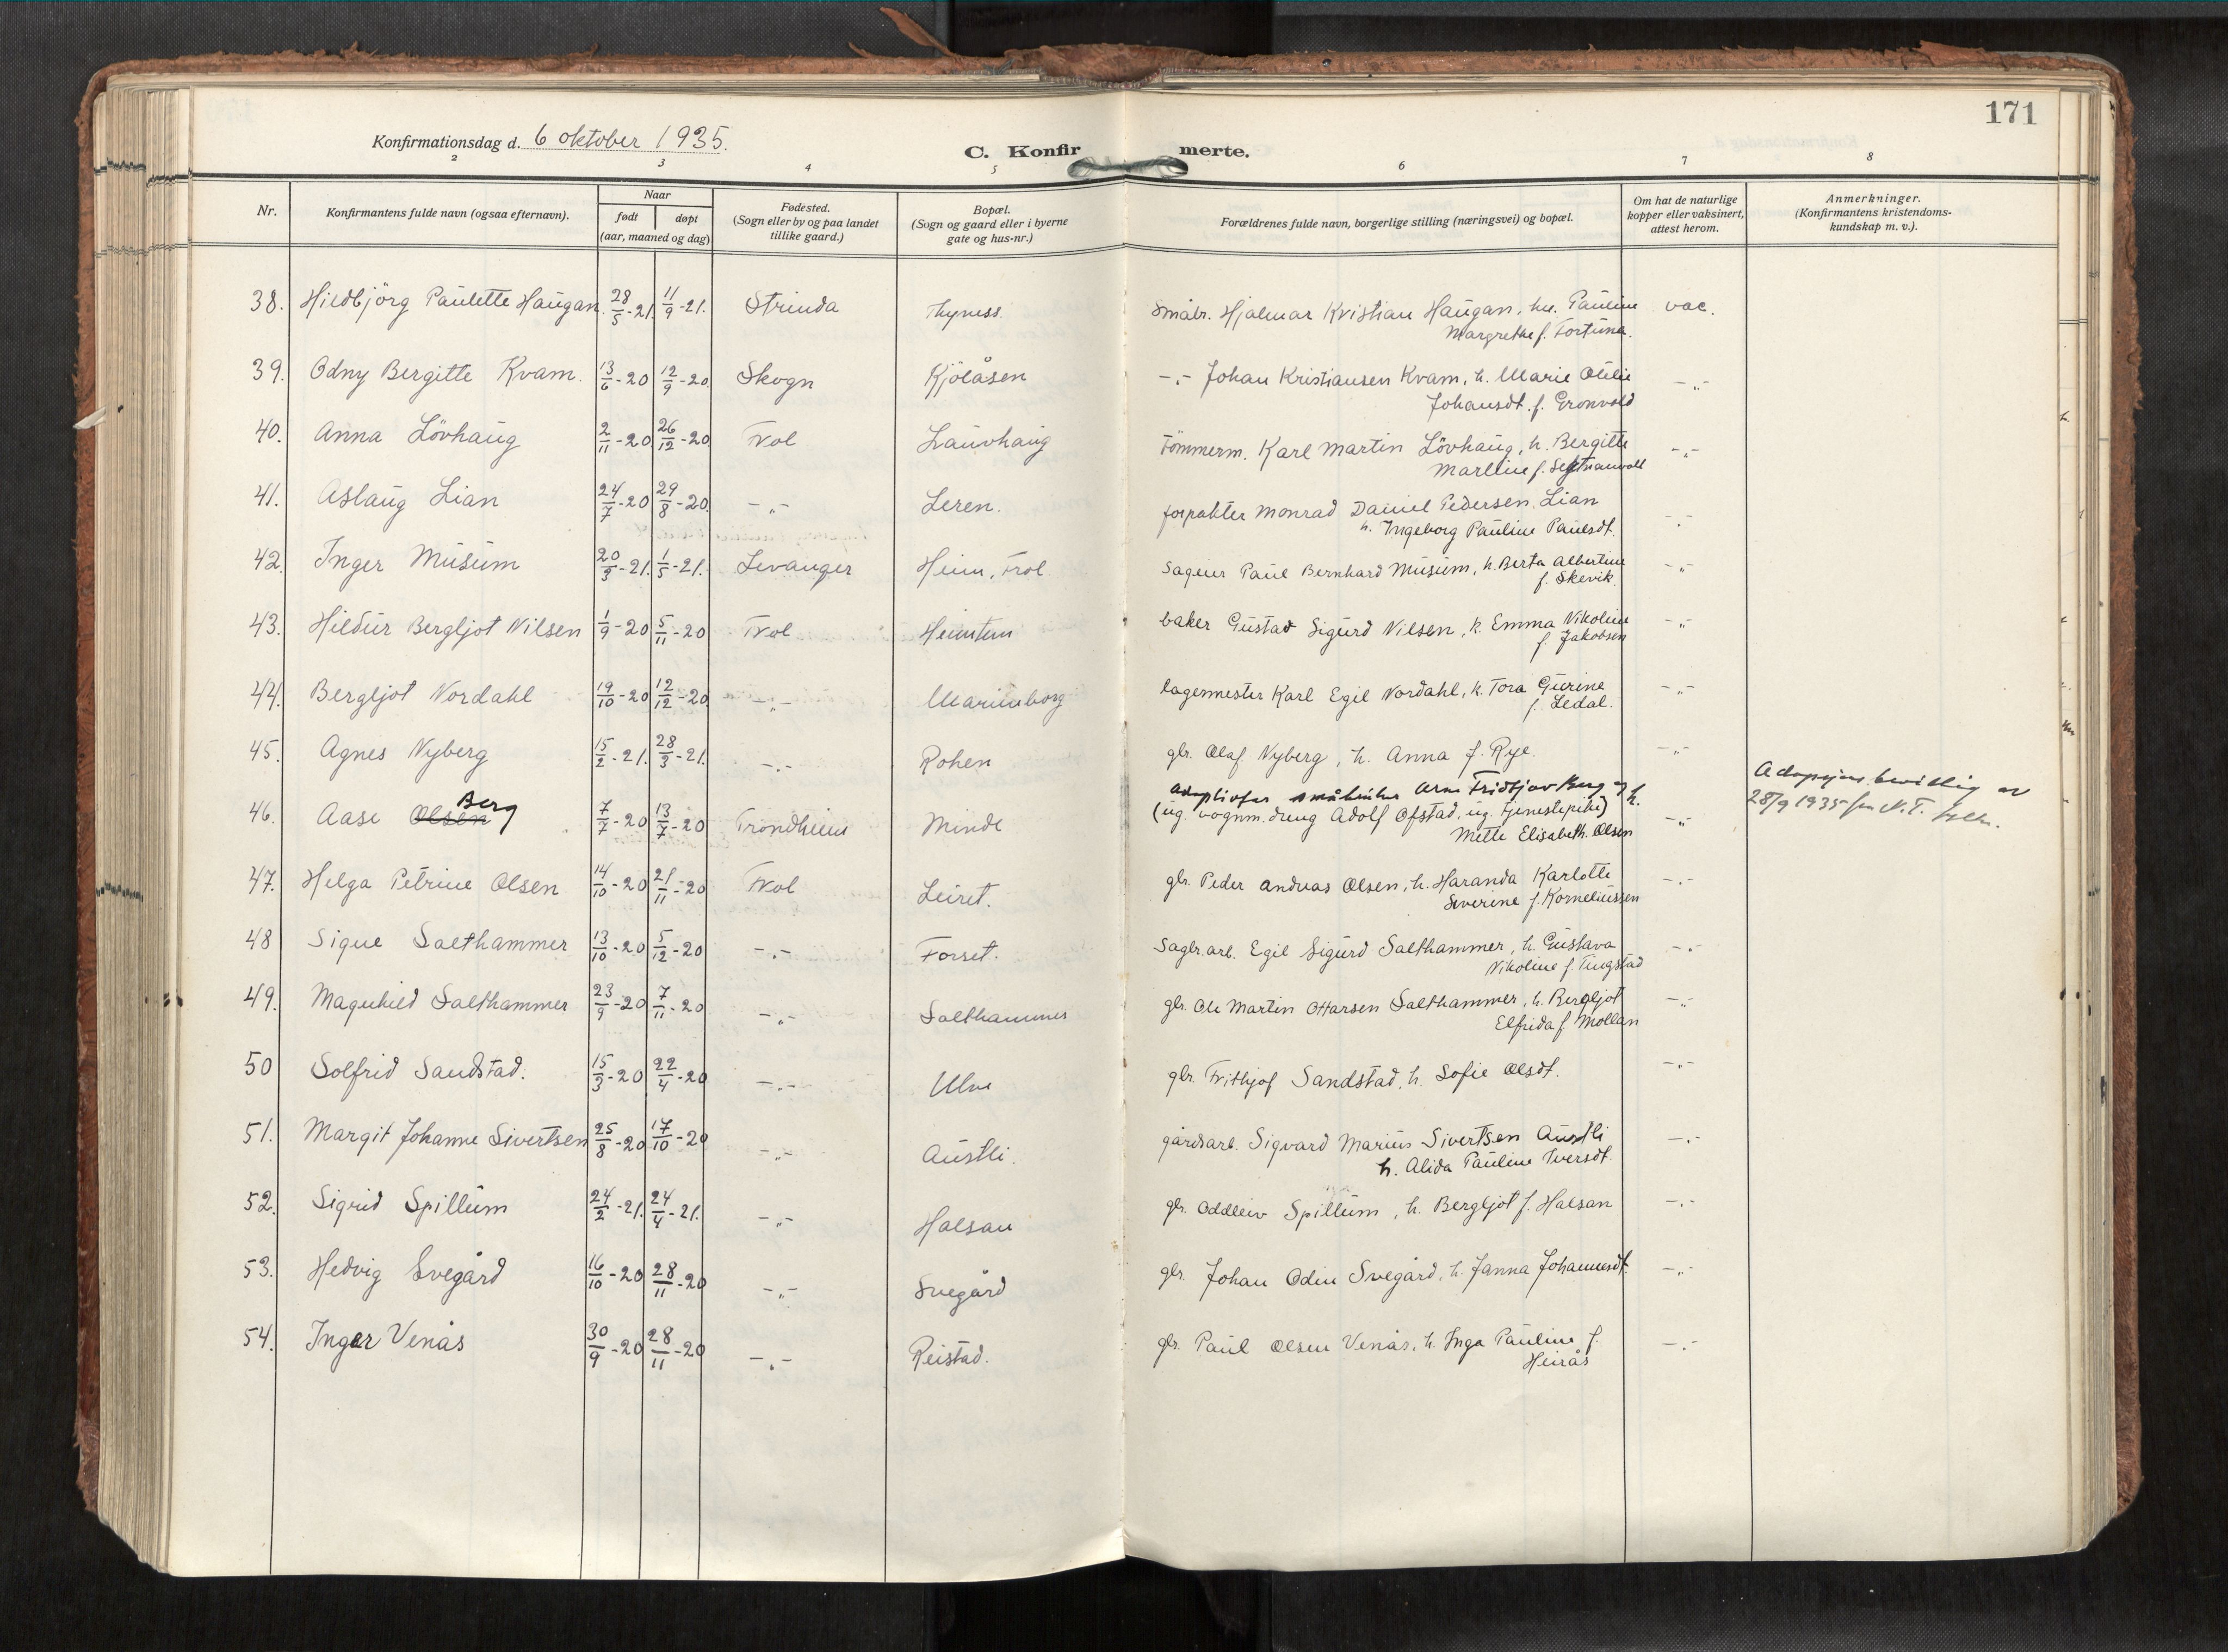 171
Konfirmationsdag d. 6 oktober 1935.
C. Konfirmerte.
2 3 4 5 6 7 8
Nr.
Konfirmantens fulde navn (ogsaa efternavn).
Naar
født døpt
(aar, maaned og dag)
Fødested.
(Sogn eller by og paa landet
tillike gaard.)
Bopæl.
(Sogn og gaard eller i byerne
gate og hus-nr.)
Forældrenes fulde navn, borgerlige stilling (næringsvei) og bopæl.
Om hat de naturlige
kopper eller vaksinert,
attest herom.
Anmerkninger.
(Konfirmantens kristendoms-
kundskap m. v.).
38. Hildbjörg Paulette Haugan. 28/5-21. 11/9-21. Strinda Thyness. Småbr. Hjalmar Kristian Haugan, hu. Pauline vac.
Margrethe f. Fortuna.
39. Odny Bergitte Kvam. 13/6-20 12/9-20 Skogn Kjölåsen -.- Johan Kristiansen Kvam, h. Marie Otilie -„-
Johansdt. f. Gronvold
40. Anna Lövhaug 2/11-20 26/12-20 Frol Lauvhaug Tömmerm. Karl Martin Lövhaug, h. Bergitte -„-
41. Aslaug Lian 24/7-20 29/8-20. -„- Leren. forpakter Monrad Daniel Pedersen Lian -„-
h. Ingeborg Pauline Paulsdt.
42. Inger Musum 20/3-21. 1/5-21. Levanger Heim, Frol Sageier Paul Bernhard Musum, h. Berta Albertine -„-
f. Skevik.
43. Hildur Bergljot Nilsen 1/9-20 5/11-20 Frol Heimtun baker Gustav Sigurd Nilsen, h. Emma Nikoline -„-
f. Jakobsen
44. Bergljot Nordahl 19/10-20 12/12-20 -„- Marienborg lagermester Karl Egil Nordahl, h. Tora Gurine -„-
f. Ledal.
45. Agnes Nyberg 15/2-21. 28/3-21. -„- Rohen gbr. Olaf Nyberg, h. Anna f. Rye. -„-
46. Aase Olsen Berg 7/7-20 13/7-20 Trondheim Minde Arne Fridtjov Berg og h.
(ug. vognm.dreng Adolf Ofstad, ug. tjenestepike) -„-
Mette Elisabeth Olsen
Adopsjons bevillig av
28/9 1935 fra N.T. fylke.
47. Helga Petrine Olsen 14/10-20 21/11-20 Frol Leiret. gbr. Peder Andreas Olsen, h. Haranda Karlotte -„-
Severine f. Korneliussen
48 Signe Salthammer 13/10-20 5/12-20 -„- Forset. Sagbr.arb. Egil Sigurd Salthammer, h. Gustava -„-
Nikoline f. Tingstad
49. Magnhild Salthammer 23/9-20 7/11-20 -„- Salthammer gbr. Ole Martin Ottarsen Salthammer, h. Bergljot -„-
Elfrida f. Mollan
50 Solfrid Sandstad. 15/3-20 22/4-20 -„- Ulve gbr. Frithjof Sandstad, h. Sofie Olsdt. -„-
51. Margit Johanne Sivertsen 25/8-20 17/10-20 -„- Austli. gårdsarb. Sigvard Marius Sivertsen Austli -„-
h. Alida Pauline Iversdt.
52. Sigrid Spillum 24/2-21. 24/4-21. -„- Halsan gbr. Oddleiv Spillum, h. Bergljot f. Halsan -„-
53. Hedvig Svegård 16/10-20 28/11-20 -„- Svegård gbr. Johan Odin Svegård, h. Janna Johannesdt. -„-
54. Inger Venås 30/9-20 28/11-20 -„- Reistad. gbr. Paul Olsen Venås, h. Inga Pauline f. -„-